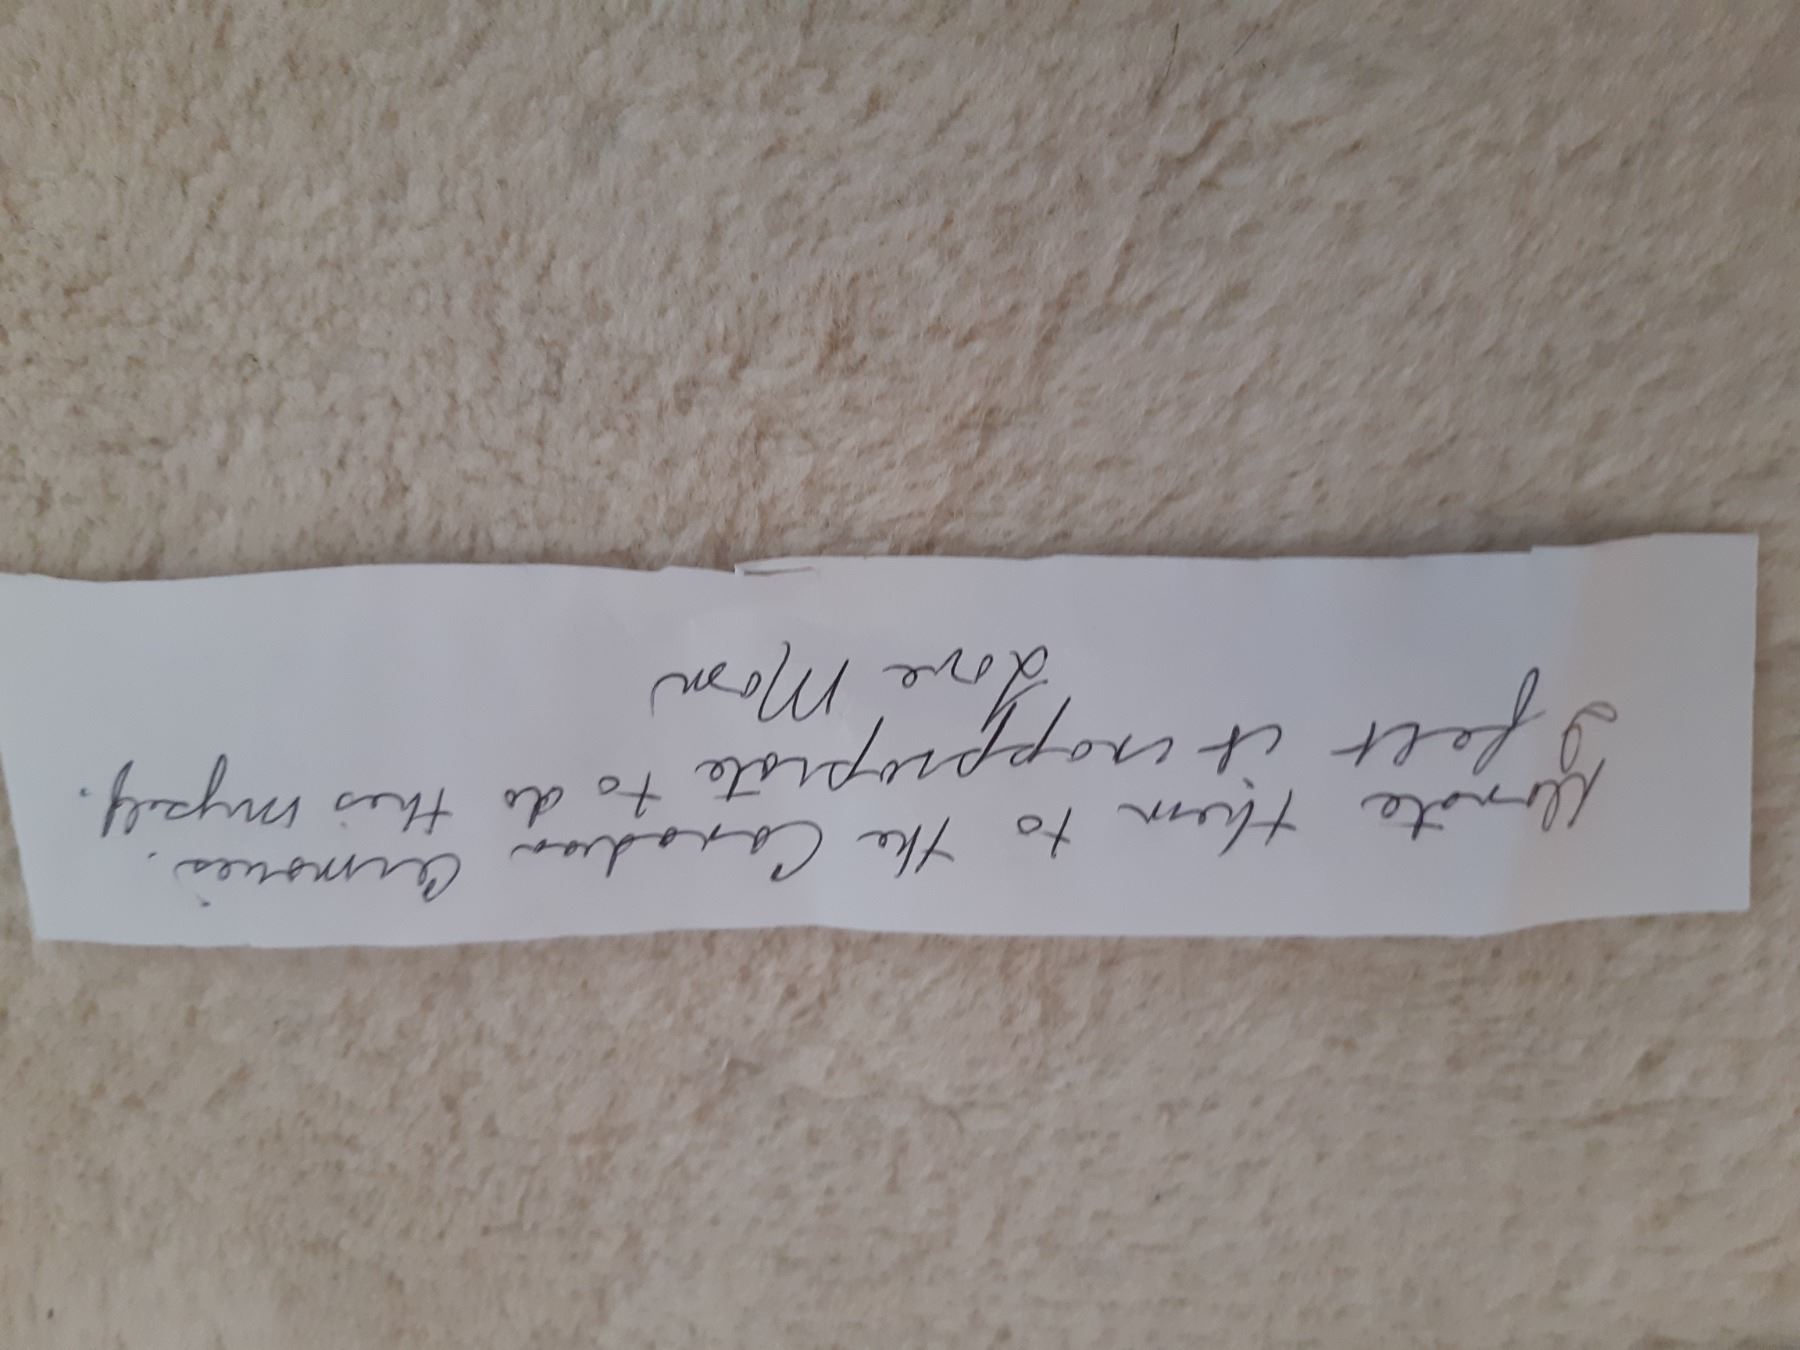 Donate them to the Canadian Armories.
I felt it inappropriate to do this myself.
Love Mom